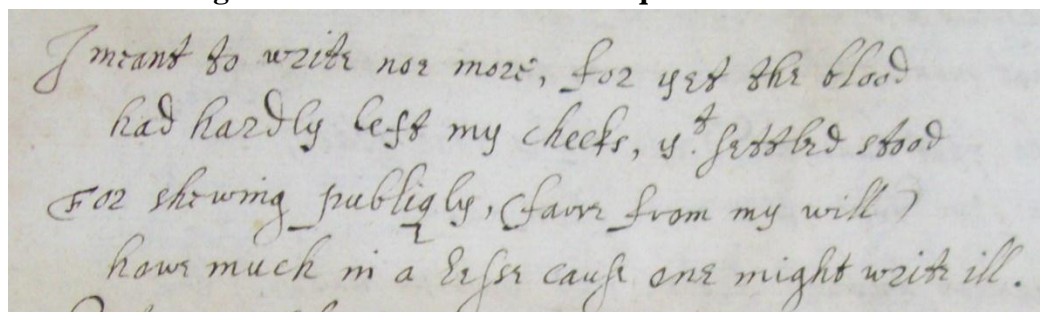 I meant to write nor more, for yet the blood
had hardly left my cheeks, yt. settled stood
For shewing publiqly, (farre from my will)
howe much in a lesse cause one might write ill.